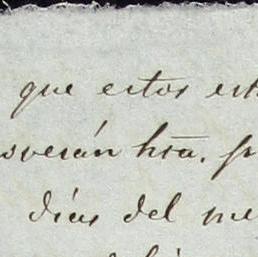 que estos est
overán hta. p
días del me